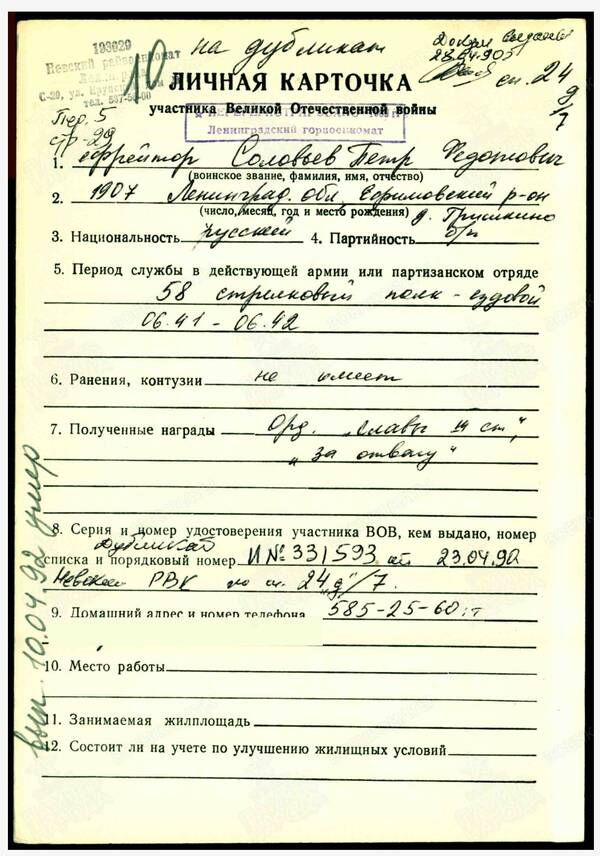 193029
Невский райвоенкомат
Ленинград
С-29, ул. Крупской
тел. 567-50-00
10 на дубликат
ЛИЧНАЯ КАРТОЧКА
сп. 24 д/7
участника Великой Отечественной войны
Ленинградский горвоенкомат
Пер. 5
стр 29
1. ефрейтор Соловьев Петр Федотович
(воинское звание, фамилия, имя, отчество)
2. 1907 Ленинград. обл, Ефимовский р-он
(число, месяц, год и место рождения) д. Гришкино
3. Национальность русский 4. Партийность б/п
5. Период службы в действующей армии или партизанском отряде
58 стрелковый полк - ездовой
06.41 - 06.42
6. Ранения, контузии не имеет
7. Полученные награды Орд. "Славы III ст",
"За отвагу"
8. Серия и номер удостоверения участника ВОВ, кем выдано, номер
Дубликат
списка и порядковый номер И № 331593 от 23.04.92
Невским РВК по сп. 24 "д"/7.
9. Домашний адрес и номер телефона 585-25-60
10. Место работы
11. Занимаемая жилплощадь
12. Состоит ли на учете по улучшению жилищных условий
вып. 10.04.92 умер